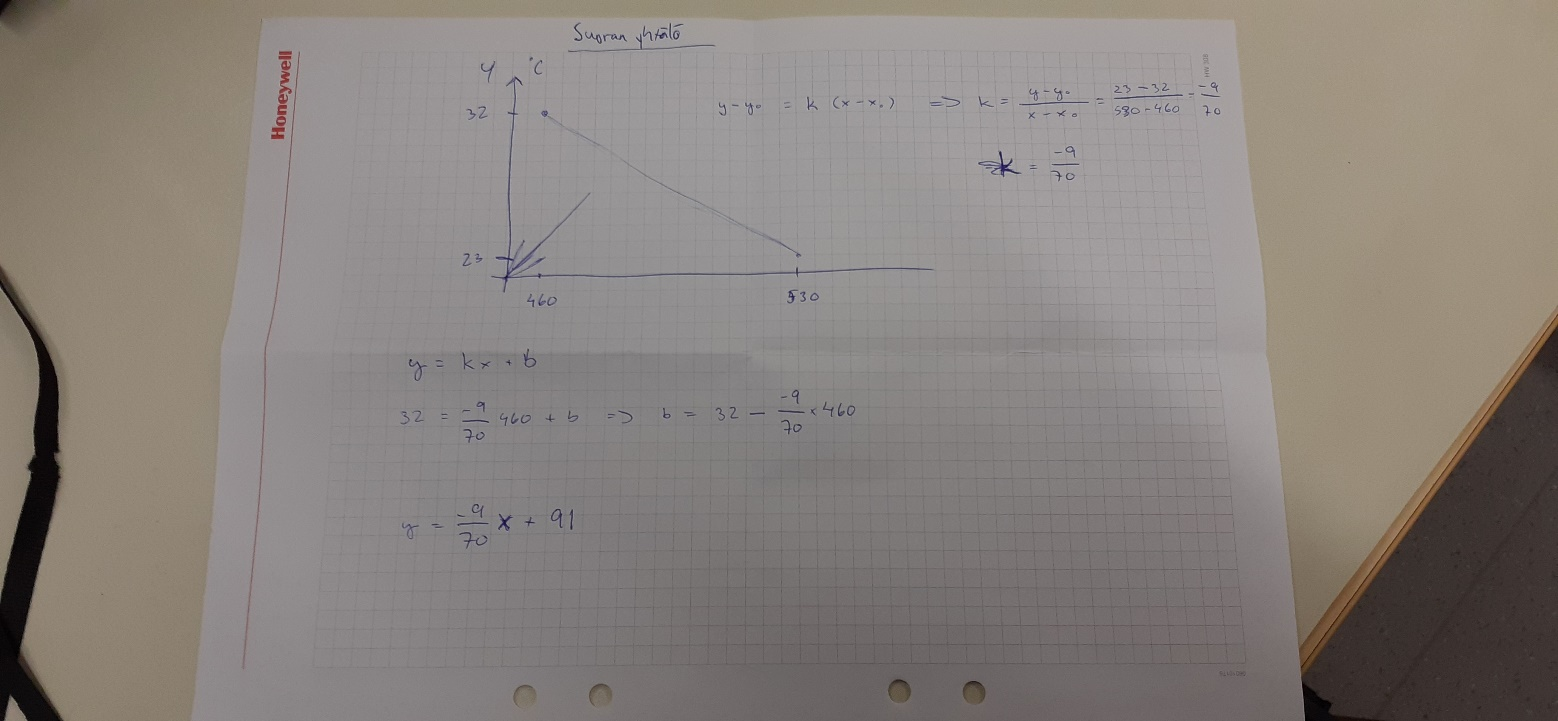 Honeywell
Suoran yhtälö
y °C
32
23
460 530
y-y₀ = k (x-x₀) => k = \frac{y-y₀}{x-x₀} = \frac{23-32}{530-460} = \frac{-9}{70}
k = \frac{-9}{70}
y = kx + b
32 = \frac{-9}{70} 460 + b => b = 32 - \frac{-9}{70} × 460
y = \frac{-9}{70} x + 91